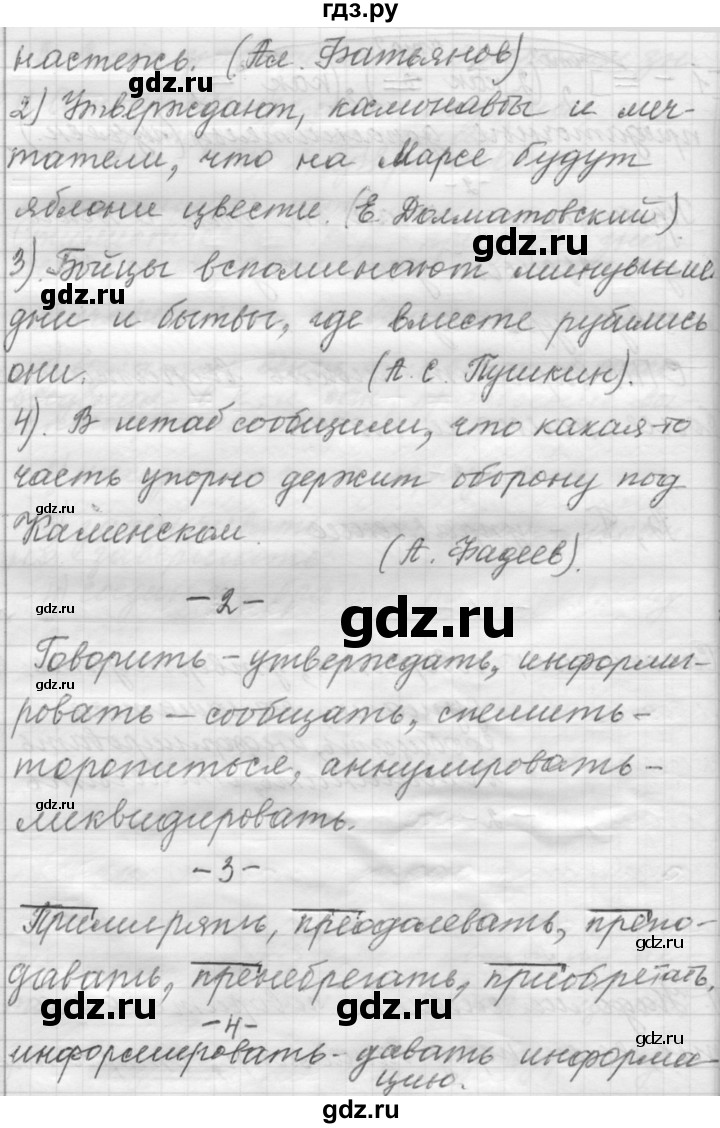 гдз.ру
настежь. (Ал. Батьянов)
2) Утверждают, космонавты и меч-
татели, что на Марсе будут
яблони цвести. (Е. Долматовский)
gdz.ru
3). Бойцы вспоминают минувшие
gdz.ru
дни и бытвы, где вместе рубились
они. (А. С. Пушкин).
4). В штаб сообщили, что какая-то
часть упорно держит оборону под
gdz.ru
Каменском.
(А. Фадеев).
-2-
gdz.ru
gdz.ru
Говорить - утверждать, информи-
gdz.ru
ровать - сообщать, спешить -
торопиться, аннулировать -
gdz.ru
ликвидировать.
-3-
Примирять, преодолевать, препо-
gdz.ru
давать, пренебрегать, приобретать.
gdz.ru gdz.ru
-4-
информировать - давать информа-
gdz.ru
цию.
gdz.ru